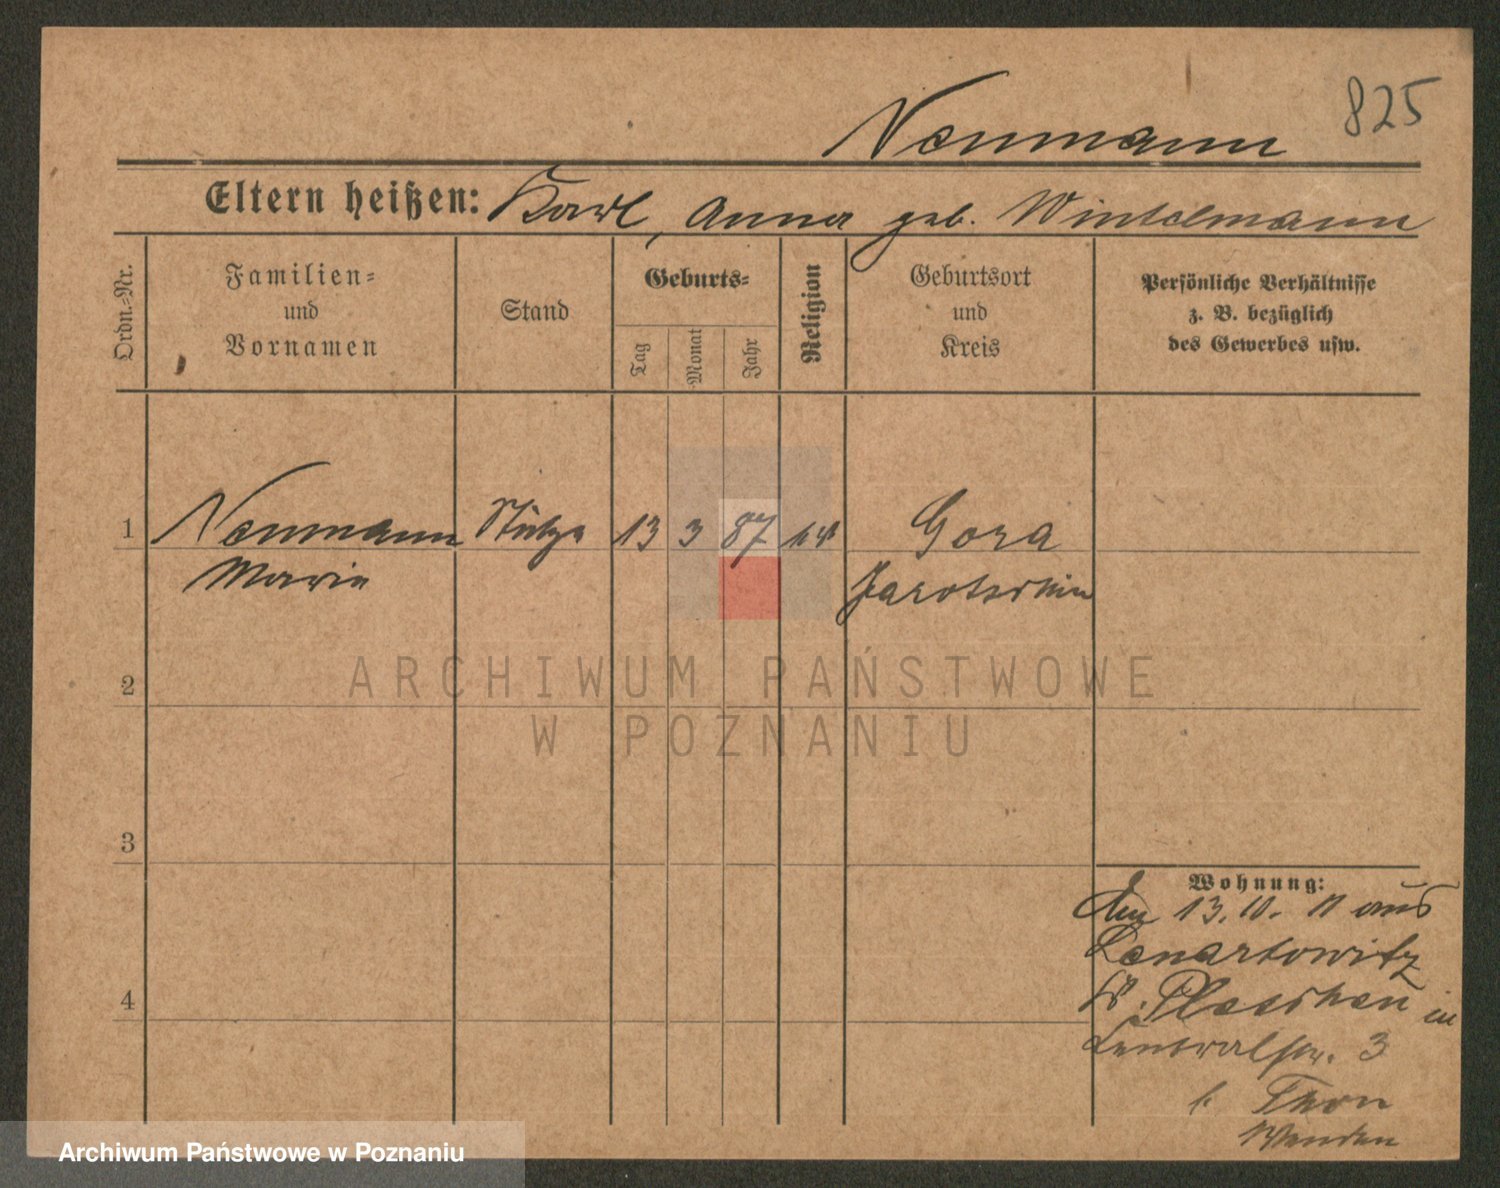 825
Neumann
Eltern heißen: Karl, Anna geb. Winkelmann
Ordn.-Nr.
Familien- und Vornamen
Stand
Geburts-
Tag
Monat
Jahr
Religion
Geburtsort und Kreis
Persönliche Verhältnisse
z. B. bezüglich
des Gewerbes usw.
1 Neumann Stütze 13 3 87 Gora
Marie Jarotschin
2
3
4
Wohnung:
Am 13.10. 11 aus
Lenartowitz
Kr. Pleschen in
Centralstr. 3
b. Thon
ARCHIWUM PAŃSTWOWE
W POZNANIU
Archiwum Państwowe w Poznaniu